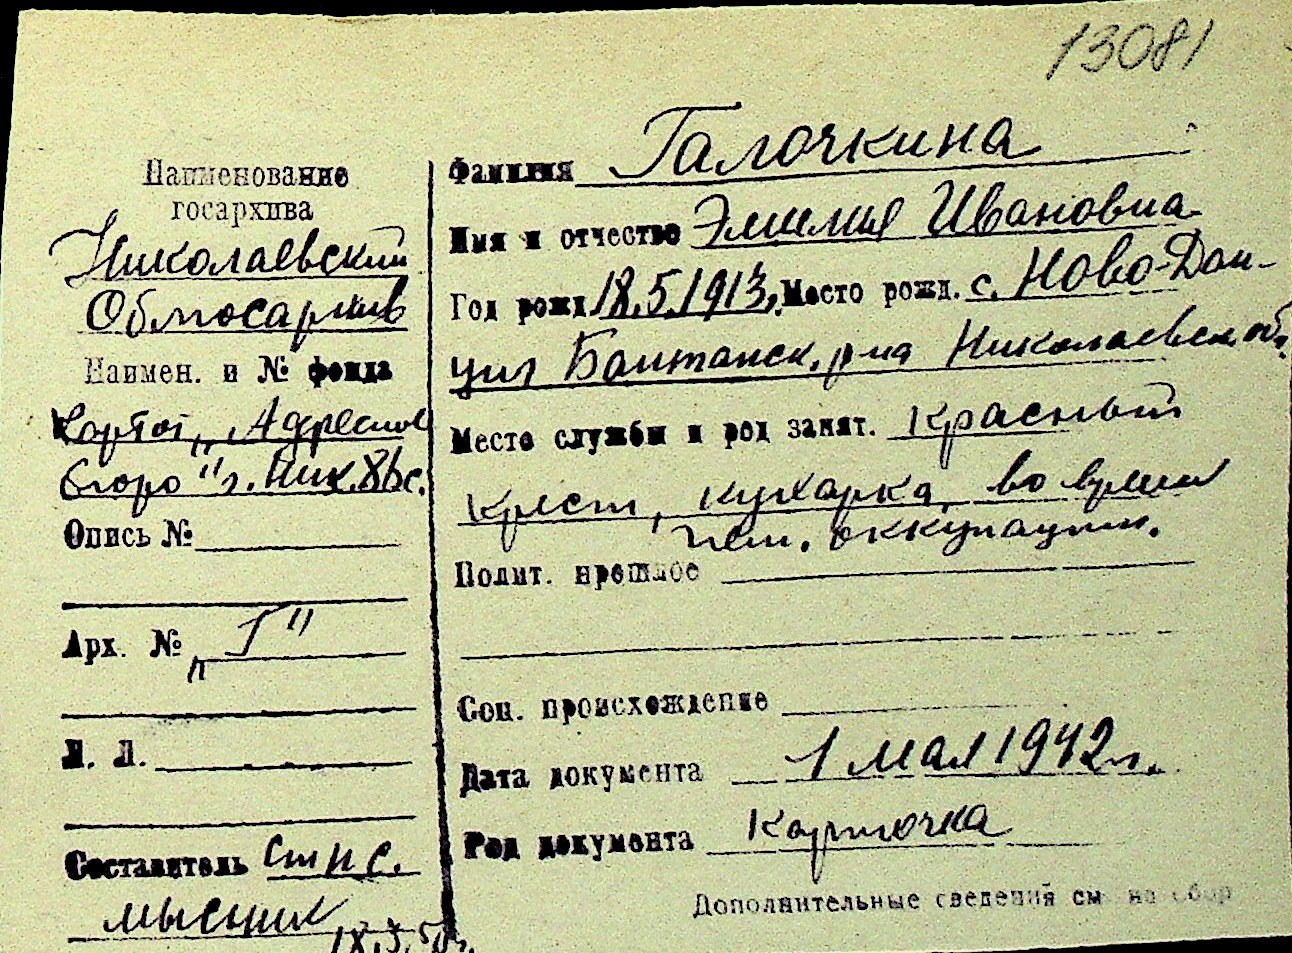 13081
Наименование
госархива
Николаевский
Облгосархив
Наимен. и № фонда
Картот. „Адресное
бюро" г. Ник.
Опись №
Арх. № „Г"
Л. Л.
Составитель ст н с.
мысник
Фамилия Галочкина
Имя и отчество Эмилия Ивановна
Год рожд. 18.5.1913, Место рожд. с. Ново-Дан-
циг Баштанск. р-на Николаевск. обл.
Место службы и род занят. Красный
крест, кухарка, во время
нем. оккупации.
Полит. прошлое
Соц. происхождение
Дата документа 1 мая 1942 г.
Род документа Карточка
Дополнительные сведения см на обор